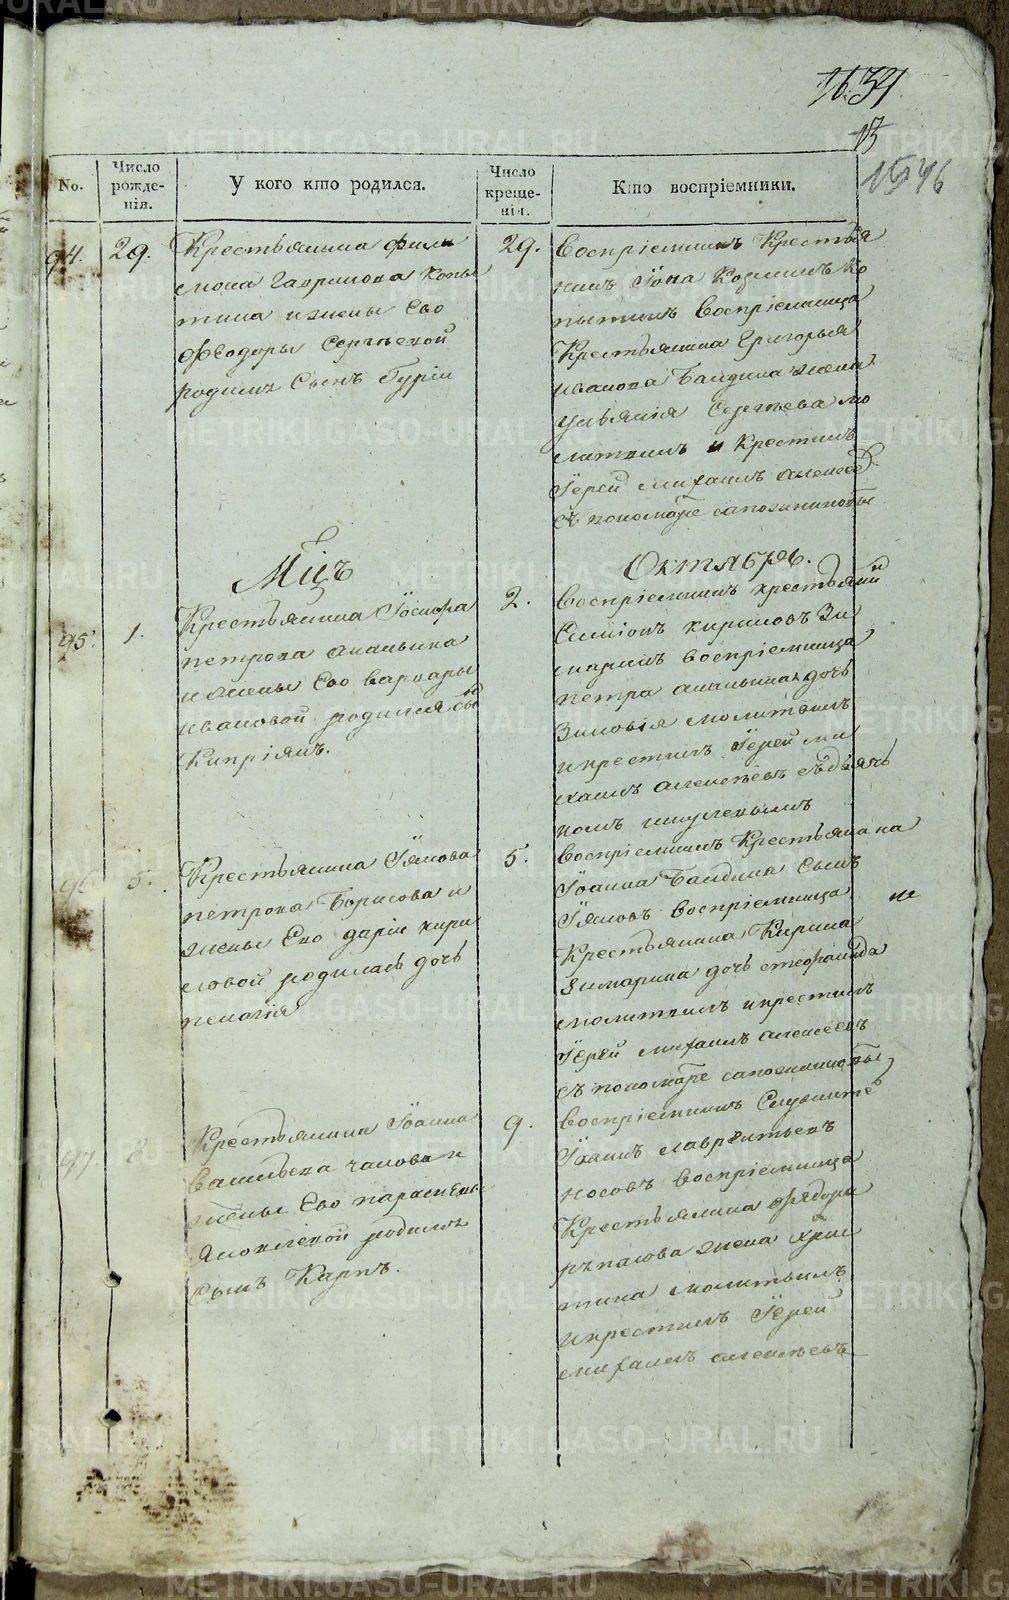 16.34
13
1546
No.
Число рожде-нія.
У кого кто родился.
Число креще-нія.
Кто воспріемники.
94. 29.
Крестьянина Фили
мона Гаврилова Копы
тина и жены Его
Ѳеодоры Сергѣевой
родился Сынъ Гурій
29.
Воспріемникъ Крестья
нинъ Іона Козминъ Ко
пытинъ Воспріемница
Крестьянина Григорья
Иванова Бандина жена
Ульянія Сергѣева мо
литвилъ и Крестилъ
Іерей Михаилъ Алексѣев
съ пономаре Сапожниковы
Мцъ
Октябрь.
95. 1.
Крестьянина Іосифа
Петрова Ананьина
и жены Его Варвары
Ивановой родился сы
Кипріянъ.
2.
Воспріемникъ крестьянин
Симіонъ Кириловъ Зи
маринъ воспріемница
Петра Ананьина дочь
Зиновія молитвилъ
и крестилъ Іерей Ми
хаилъ Алексѣевъ съ дьяч
комъ
96. 5.
Крестьянина Іякова
Петрова Борисова и
жены Его Даріи Кири
ловой родилась дочь
Пелагія
5.
Воспріемникъ Крестьянина
Іоанна Бандина Сынъ
Іяковъ Воспріемница
Крестьянина Кирила
Зимарина дочь Стефанида
молитвилъ и крестилъ
Іерей Михаилъ Алексѣевъ
съ пономаре Сапожниковы
97. 8
Крестьянина Іоанна
Васильева Чапова и
жены Его Параскевы
Яковлевой родился
Сынъ Карпъ.
9.
Воспріемникъ Служите
Іоаннъ Лаврентьевъ
Носовъ Воспріемница
Крестьянина Ѳедора
Рѣпалова жена Хрис
тина молитвилъ
и крестилъ Іерей
Михаилъ Алексѣевъ
METRIKI.GASO-URAL.RU